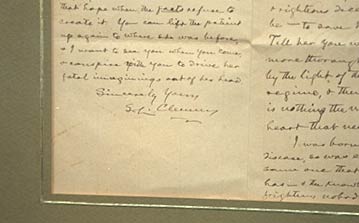 that hope when the facts refuse to
create it. You can lift the patient
up again to where she was before,
& I want to see you when you come,
& conspire with you to drive her
fatal imaginings out of her head.
Sincerely Yours
S. L. Clemens
righteous
to save
Tell her you
more thorough
by the light of
regime, & then
is nothing the
heart that
I was born
disease, so was
same one that
has & the
frighten nobod